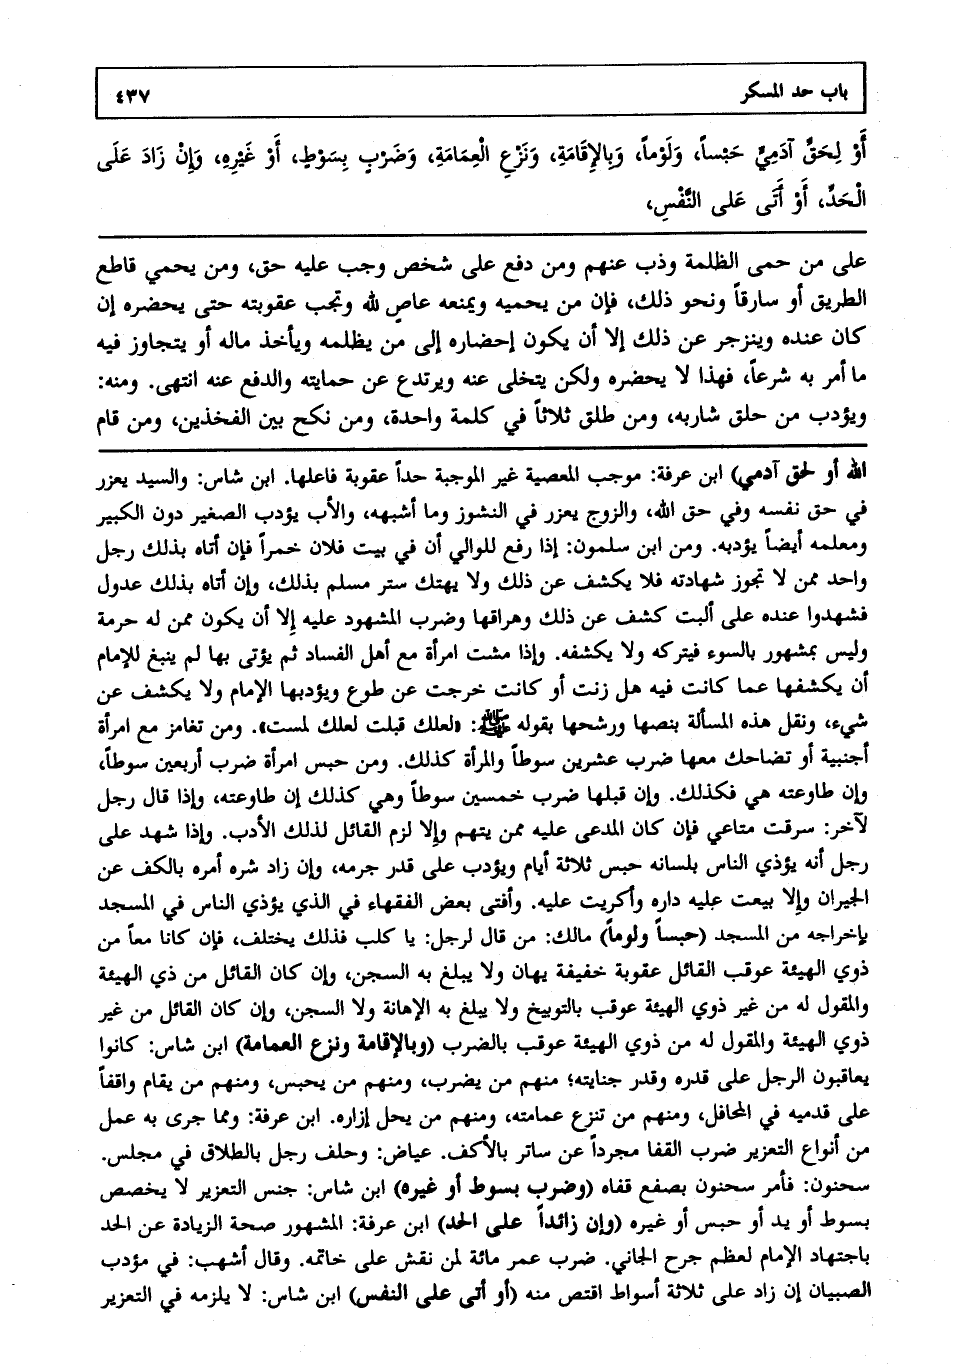 باب حد المسكر ٤٣٧
أَوْ لِحَقِّ آدَمِيٍّ حَبْساً، وَلَوْماً، وَبِالإِقَامَةِ، وَنَزْعِ الْعِمَامَةِ، وَضَرْبٍ بِسَوْطٍ، أَوْ غَيْرِهِ، وَإِنْ زَادَ عَلَى
الْحَدِّ، أَوْ أَتَى عَلى النَّفْسِ،
على من حمى الظلمة وذب عنهم ومن دفع على شخص وجب عليه حق، ومن يحمي قاطع
الطريق أو سارقاً ونحو ذلك، فإن من يحميه ويمنعه عاصٍ لله وتجب عقوبته حتى يحضره إن
كان عنده وينزجر عن ذلك إلا أن يكون إحضاره إلى من يظلمه ويأخذ ماله أو يتجاوز فيه
ما أمر به شرعاً، فهذا لا يحضره ولكن يتخلى عنه ويرتدع عن حمايته والدفع عنه انتهى. ومنه:
ويؤدب من حلق شاربه، ومن طلق ثلاثاً في كلمة واحدة، ومن نكح بين الفخذين، ومن قام
الله أو لحق آدمي) ابن عرفة: موجب المعصية غير الموجبة حداً عقوبة فاعلها. ابن شاس: والسيد يعزر
في حق نفسه وفي حق الله، والزوج يعزر في النشوز وما أشبهه، والأب يؤدب الصغير دون الكبير
ومعلمه أيضاً يؤدبه. ومن ابن سلمون: إذا رفع للوالي أن في بيت فلان خمراً فإن أتاه بذلك رجل
واحد ممن لا تجوز شهادته فلا يكشف عن ذلك ولا يهتك ستر مسلم بذلك، وإن أتاه بذلك عدول
فشهدوا عنده على ألبت كشف عن ذلك وهراقها وضرب المشهود عليه إلا أن يكون ممن له حرمة
وليس بمشهور بالسوء فيتركه ولا يكشفه. وإذا مشت امرأة مع أهل الفساد ثم يؤتى بها لم ينبغ للإمام
أن يكشفها عما كانت فيه هل زنت أو كانت خرجت عن طوع ويؤدبها الإمام ولا يكشف عن
شيء، ونقل هذه المسألة بنصها ورشحها بقوله ﷺ: «لعلك قبلت لعلك لمست». ومن تغامز مع امرأة
أجنبية أو تضاحك معها ضرب عشرين سوطاً والمرأة كذلك. ومن حبس امرأة ضرب أربعين سوطاً،
وإن طاوعته هي فكذلك. وإن قبلها ضرب خمسين سوطاً وهي كذلك إن طاوعته، وإذا قال رجل
لآخر: سرقت متاعي فإن كان المدعى عليه ممن يتهم وإلا لزم القائل لذلك الأدب. وإذا شهد على
رجل أنه يؤذي الناس بلسانه حبس ثلاثة أيام ويؤدب على قدر جرمه، وإن زاد شره أمره بالكف عن
الجيران وإلا بيعت عليه داره وأكريت عليه. وأفتى بعض الفقهاء في الذي يؤذي الناس في المسجد
بإخراجه من المسجد (حبساً ولوماً) مالك: من قال لرجل: يا كلب فذلك يختلف، فإن كانا معاً من
ذوي الهيئة عوقب القائل عقوبة خفيفة يهان ولا يبلغ به السجن، وإن كان القائل من ذي الهيئة
والمقول له من غير ذوي الهيئة عوقب بالتوبيخ ولا يبلغ به الإهانة ولا السجن، وإن كان القائل من غير
ذوي الهيئة والمقول له من ذوي الهيئة عوقب بالضرب (وبالإقامة ونزع العمامة) ابن شاس: كانوا
يعاقبون الرجل على قدره وقدر جنايته؛ منهم من يضرب، ومنهم من يحبس، ومنهم من يقام واقفاً
على قدميه في المحافل، ومنهم من تنزع عمامته، ومنهم من يحل إزاره. ابن عرفة: ومما جرى به عمل
من أنواع التعزير ضرب القفا مجرداً عن ساتر بالأكف. عياض: وحلف رجل بالطلاق في مجلس.
سحنون: فأمر سحنون بصفع قفاه (وضرب بسوط أو غيره) ابن شاس: جنس التعزير لا يخصص
بسوط أو يد أو حبس أو غيره (وإن زائداً على الحد) ابن عرفة: المشهور صحة الزيادة عن الحد
باجتهاد الإمام لعظم جرح الجاني. ضرب عمر مائة لمن نقش على خاتمه. وقال أشهب: في مؤدب
الصبيان إن زاد على ثلاثة أسواط اقتص منه (أو أتى على النفس) ابن شاس: لا يلزمه في التعزير